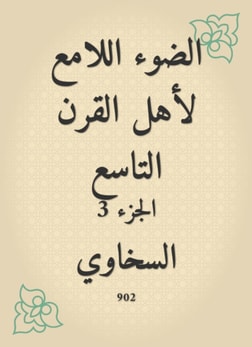 الضوء اللامع
لأهل القرن
التاسع
الجزء 3
السخاوي
902